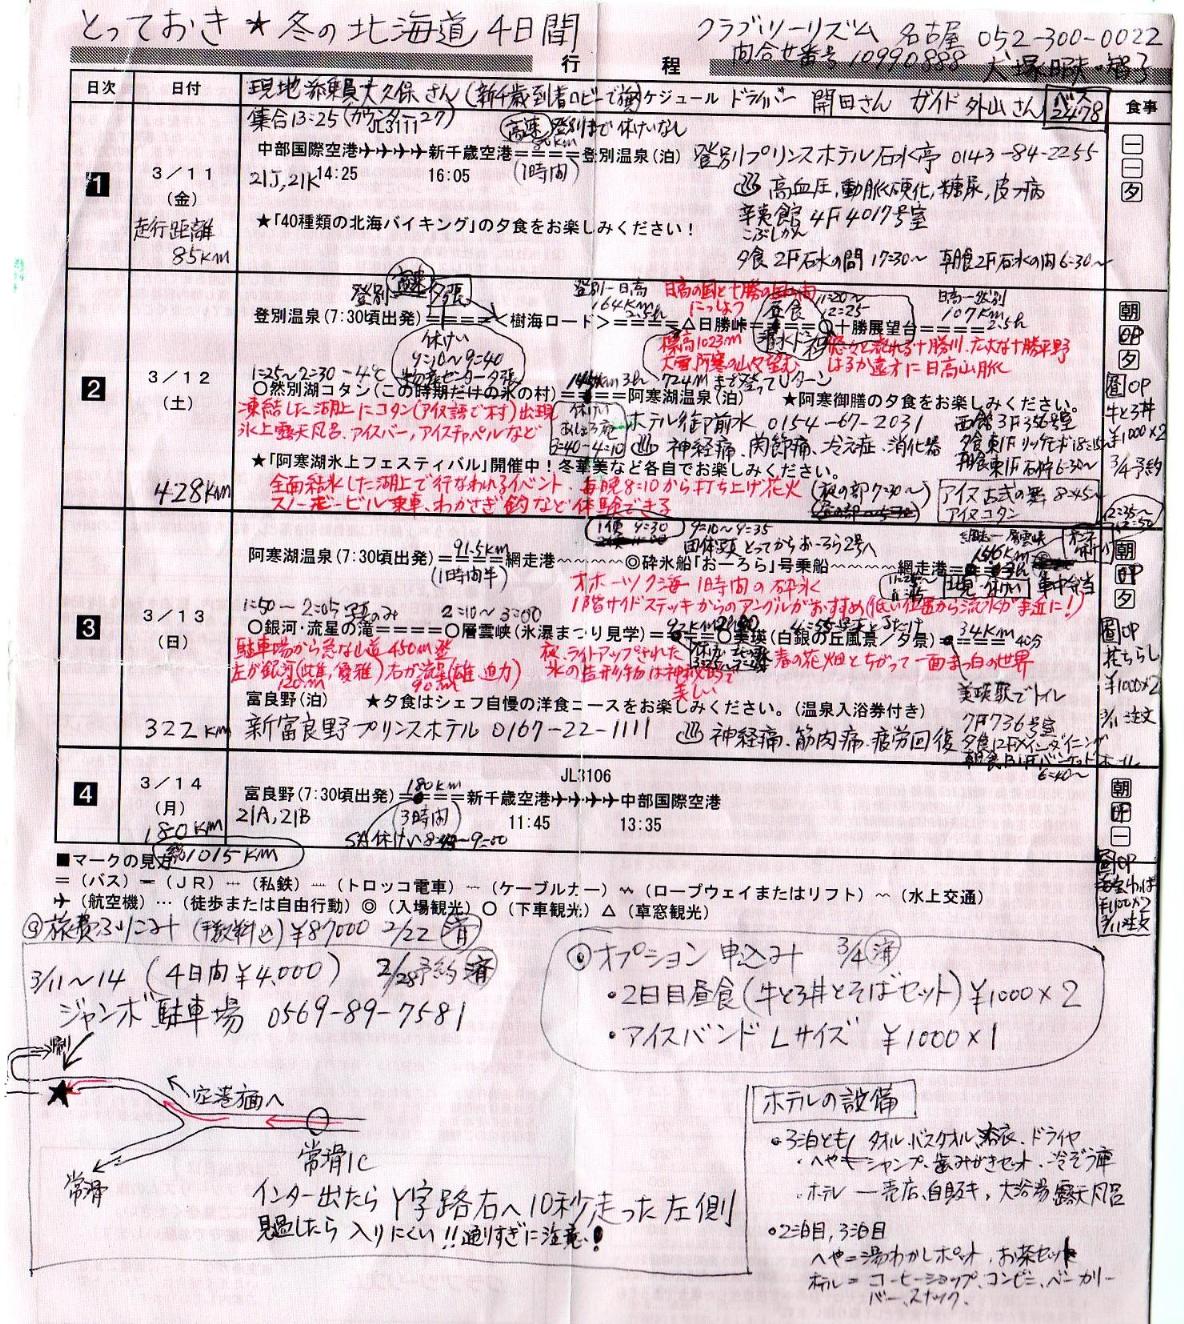 とっておき★冬の北海道4日間
クラブツーリズム 名古屋 052-300-0022
問合せ番号 10990888
行 程
日次 日付 スケジュール 食事
現地添乗員大久保さん(新千歳到着ロビーで
ドライバー 開田さん ガイド 外山さん
集合13:25(カウンター27)
JL3111
高速 登別まで休けいなし
中部国際空港✈✈✈✈新千歳空港====登別温泉(泊) 登別プリンスホテル石水亭 0143-84-2255
1 3/11 21J,21K 14:25 16:05 (1時間)
(金)
♨ 高血圧,動脈硬化,糖尿,皮フ病
走行距離
85km
辛夷館 4F 4017号室
こぶしかん
★「40種類の北海バイキング」の夕食をお楽しみください!
夕食2F石水の間 17:30~ 朝食2F石水の間 6:30~
一
一
夕
登別 高速 夕張
登別-日高 164km 2.5h
日高の国と十勝の国の間
にっしょう
昼食
11:20~
12:25
107km 2.5h
登別温泉(7:30頃出発)====<樹海ロード>====△日勝峠====〇十勝展望台====
休けい
9:10~9:40
標高1023m
清水ドライブイン
はるか遠方に日高山脈
2 3/12
(土)
1:25~2:30 -4℃
〇然別湖コタン(この時期だけの氷の村)====阿寒湖温泉(泊) ★阿寒御膳の夕食をお楽しみください。
凍結した湖上にコタン(アイヌ語で村)出現
氷上露天風呂、アイスバー,アイスチャペルなど
休けい
あしょろ庵
3:40-4:10
ホテル御前水 0154-67-2031
西館3F356号室
♨ 神経痛、関節痛、冷え症、消化器
★「阿寒湖氷上フェスティバル」開催中!冬華美など各自でお楽しみください。
428km
全面結氷した湖上で行なわれるイベント、毎晩8:10から打ち上げ花火
スノーモービル乗車、わかさぎ釣など体験できる
(夜の部7:30~)
アイヌ古式の舞 8:45~
アイヌコタン
朝
OP
夕
昼OP
牛とろ丼
¥1000×2
3/4予約
1便 9:30
9:10~9:35
団体頭とってからおーろら2号へ
阿寒湖温泉(7:30頃出発)====網走港~~~~~◎砕氷船「おーろら」号乗船~~~~~網走港====
91.5km
(1時間半)
オホーツク海 1時間の砕氷
1階サイドステッキからのアングルがおすすめ(低い位置から流氷が手近に!)
車中弁当
3 3/13
(日)
1:50~2:05 写真のみ 2:10~3:00
〇銀河・流星の滝====〇層雲峡(氷瀑まつり見学)====〇美瑛(白銀の丘風景/夕景)====
34km 40分
駐車場から急な山道450m登
左が銀河(雌,優雅)右が流星(雄,迫力)
120m 90m
夜、ライトアップされた
氷の造形物は神秘的で
美しい
春の花畑とちがって一面まっ白の世界
美瑛駅でトイレ
富良野(泊) ★夕食はシェフ自慢の洋食コースをお楽しみください。(温泉入浴券付き)
322km 新富良野プリンスホテル 0167-22-1111 ♨ 神経痛、筋肉痛、疲労回復
7F736号室
夕食12Fメインダイニング
6:40~
朝
OP
夕
昼OP
花ちらし
¥1000×2
3/11注文
JL3106
4 3/14
(月)
180km
180km
富良野(7:30頃出発)====新千歳空港✈✈✈✈中部国際空港
21A,21B (3時間) 11:45 13:35
SA休けい
朝
OP
一
¥1100×2
3/11注文
総1015km
■マークの見方
=(バス) ー(JR) …(私鉄) …(トロッコ電車) …(ケーブルカー) ~(ロープウェイまたはリフト) ~(水上交通)
✈(航空機) …(徒歩または自由行動) ◎(入場観光) 〇(下車観光) △(車窓観光)
◎旅費ふりこみ(手数料込)¥87000 2/22 済
3/11~14(4日間¥4,000) 2/28予約 済
ジャンボ駐車場 0569-89-7581
空港方面へ
常滑IC
常滑
インター出たらY字路右へ10秒走った左側
見過したら入りにくい!!通りすぎに注意!
◎オプション申込み 3/4済
・2日目昼食(牛とろ丼とそばセット)¥1000×2
・アイスバンド Lサイズ ¥1000×1
ホテルの設備
・3泊とも タオル,バスタオル,浴衣、ドライヤ
・へや=シャンプ、歯みがきセット、冷ぞう庫
・ホテル ー売店、自販キ,大浴場,露天風呂
・2泊目,3泊目
へや=湯わかしポット、お茶セット
ホテル=コーヒーショップ、コンビニ、ベーカリー
バー、スナック、